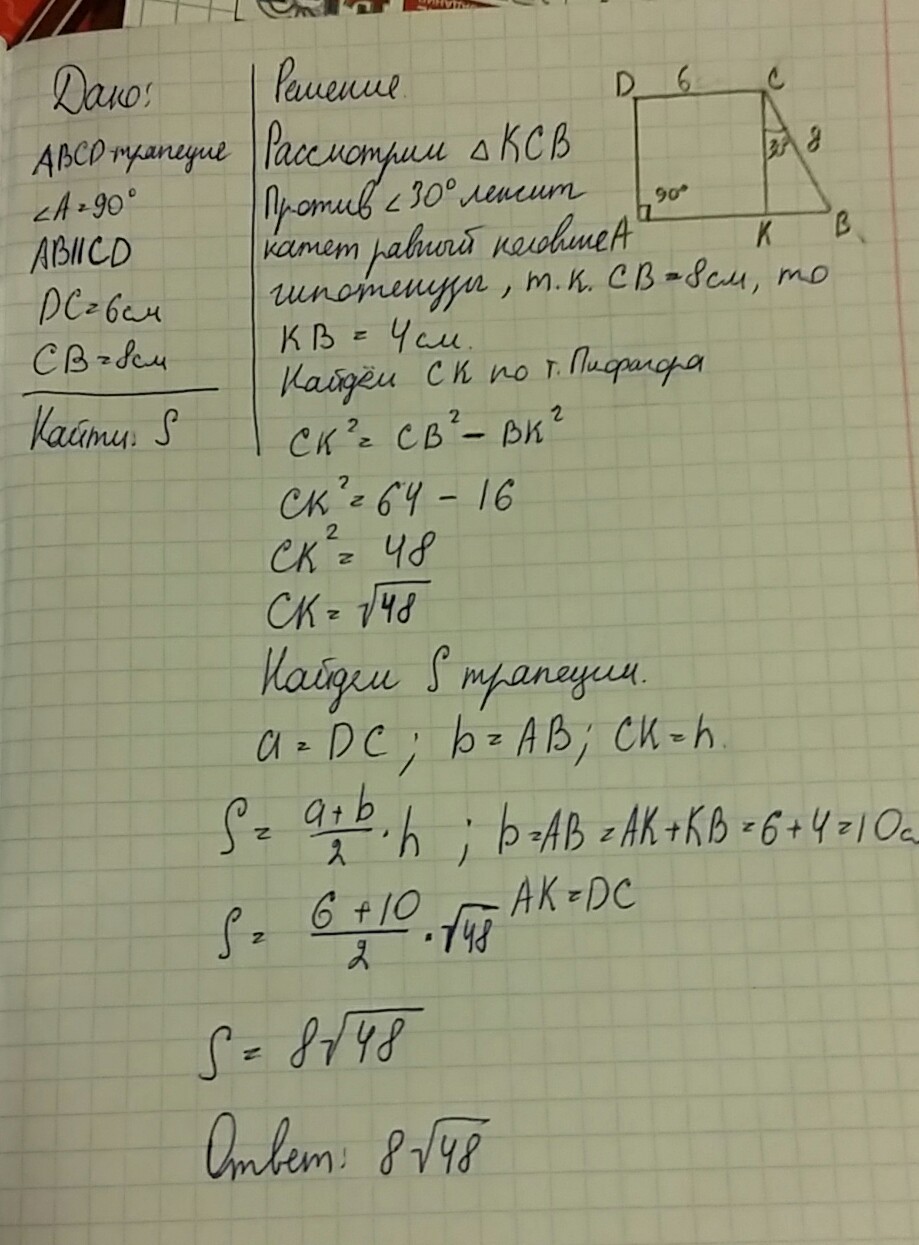 Дано:
ABCD трапеция
∠A = 90°
AB || CD
DC = 6 см
CB = 8 см
Найти: S
Решение
Рассмотрим △ KCB
Против ∠30° лежит
катет равный половине
гипотенузы, т.к. CB = 8 см, то
KB = 4 см.
Найдём CK по т. Пифагора
CK² = CB² - BK²
CK² = 64 - 16
CK² = 48
CK = √48
Найдем S трапеции.
a = DC; b = AB; CK = h.
S = (a+b)/2 · h ; b = AB = AK + KB = 6 + 4 = 10 с
S = (6+10)/2 · √48 AK = DC
S = 8√48
Ответ: 8√48
D 6 C
30° 8
90°
A K B